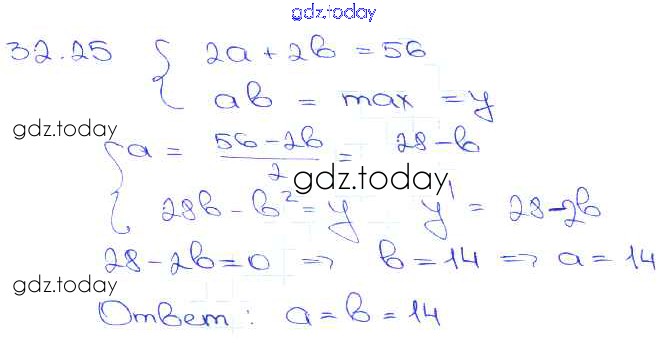 gdz.today
32.25 { 2a + 2b = 56
ab = max = y
gdz.today
{ a = (56 - 2b)/2 = 28 - b
gdz.today
28b - b² = y y' = 28 - 2b
28 - 2b = 0 => b = 14 => a = 14
gdz.today
Ответ: a = b = 14